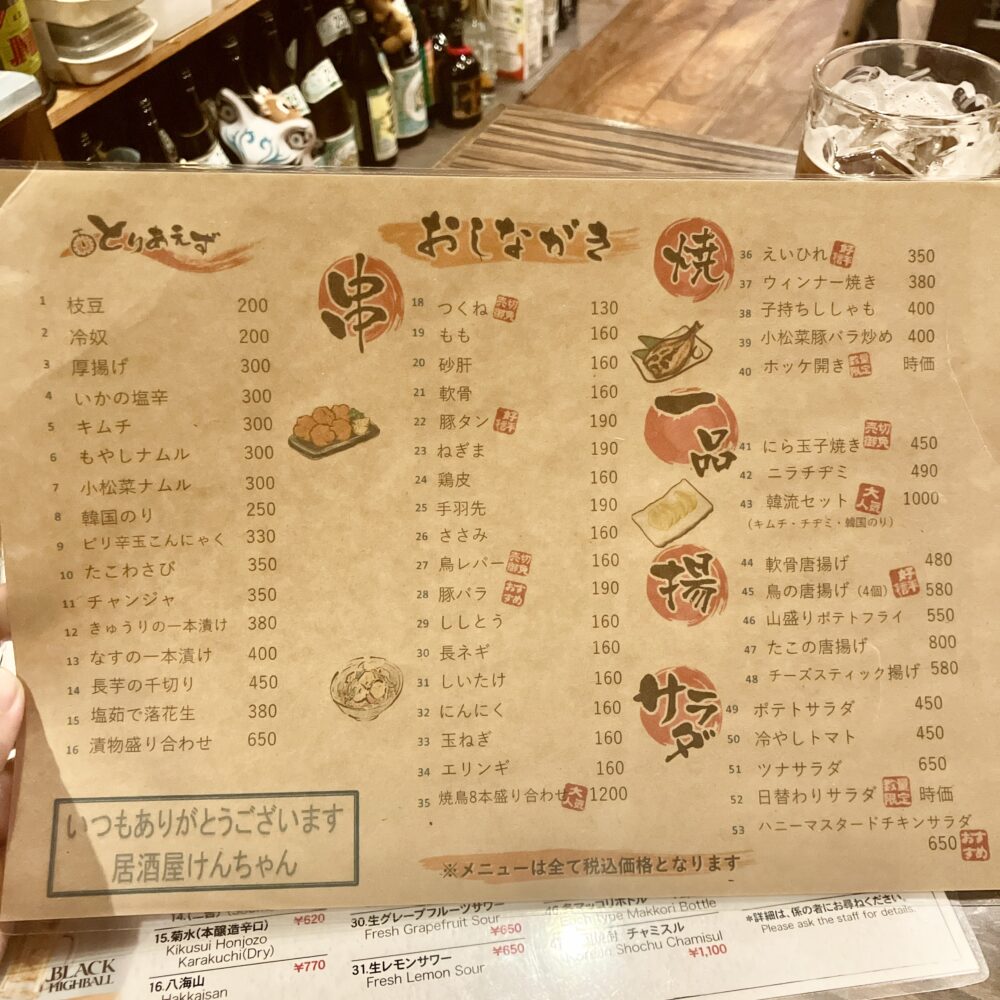 とりあえず
1 枝豆 200
2 冷奴 200
3 厚揚げ 300
4 いかの塩辛 300
5 キムチ 300
6 もやしナムル 300
7 小松菜ナムル 300
8 韓国のり 250
9 ピリ辛玉こんにゃく 330
10 たこわさび 350
11 チャンジャ 350
12 きゅうりの一本漬け 380
13 なすの一本漬け 400
14 長芋の千切り 450
15 塩茹で落花生 380
16 漬物盛り合わせ 650
いつもありがとうございます
居酒屋けんちゃん
おしながき
串
18 つくね 売切御免 130
19 もも 160
20 砂肝 160
21 軟骨 160
22 豚タン 好評 190
23 ねぎま 190
24 鶏皮 160
25 手羽先 190
26 ささみ 160
27 鳥レバー 売切御免 160
28 豚バラ おすすめ 190
29 ししとう 160
30 長ネギ 160
31 しいたけ 160
32 にんにく 160
33 玉ねぎ 160
34 エリンギ 160
35 焼鳥8本盛り合わせ 大人気 1200
※メニューは全て税込価格となります
焼
36 えいひれ 好評 350
37 ウィンナー焼き 380
38 子持ちししゃも 400
39 小松菜豚バラ炒め 400
40 ホッケ開き 数量限定 時価
一品
41 にら玉子焼き 売切御免 450
42 ニラチヂミ 490
43 韓流セット 大人気 1000
(キムチ・チヂミ・韓国のり)
揚
44 軟骨唐揚げ 480
45 鳥の唐揚げ (4個) 好評 580
46 山盛りポテトフライ 550
47 たこの唐揚げ 800
48 チーズスティック揚げ 580
サラダ
49 ポテトサラダ 450
50 冷やしトマト 450
51 ツナサラダ 650
52 日替わりサラダ 数量限定 時価
53 ハニーマスタードチキンサラダ
650 おすすめ
BLACK
HIGHBALL
¥620
15.菊水(本醸造辛口)
Kikusui Honjozo
Karakuchi(Dry)
¥770
16.八海山
Hakkaisan
30.生グレープフルーツサワー
Fresh Grapefruit Sour
¥650
31.生レモンサワー
Fresh Lemon Sour
¥650
Makkori Bottle
チャミスル
Shochu Chamisul
¥1,100
*詳細は、係の者にお尋ねください
Please ask the staff for details.